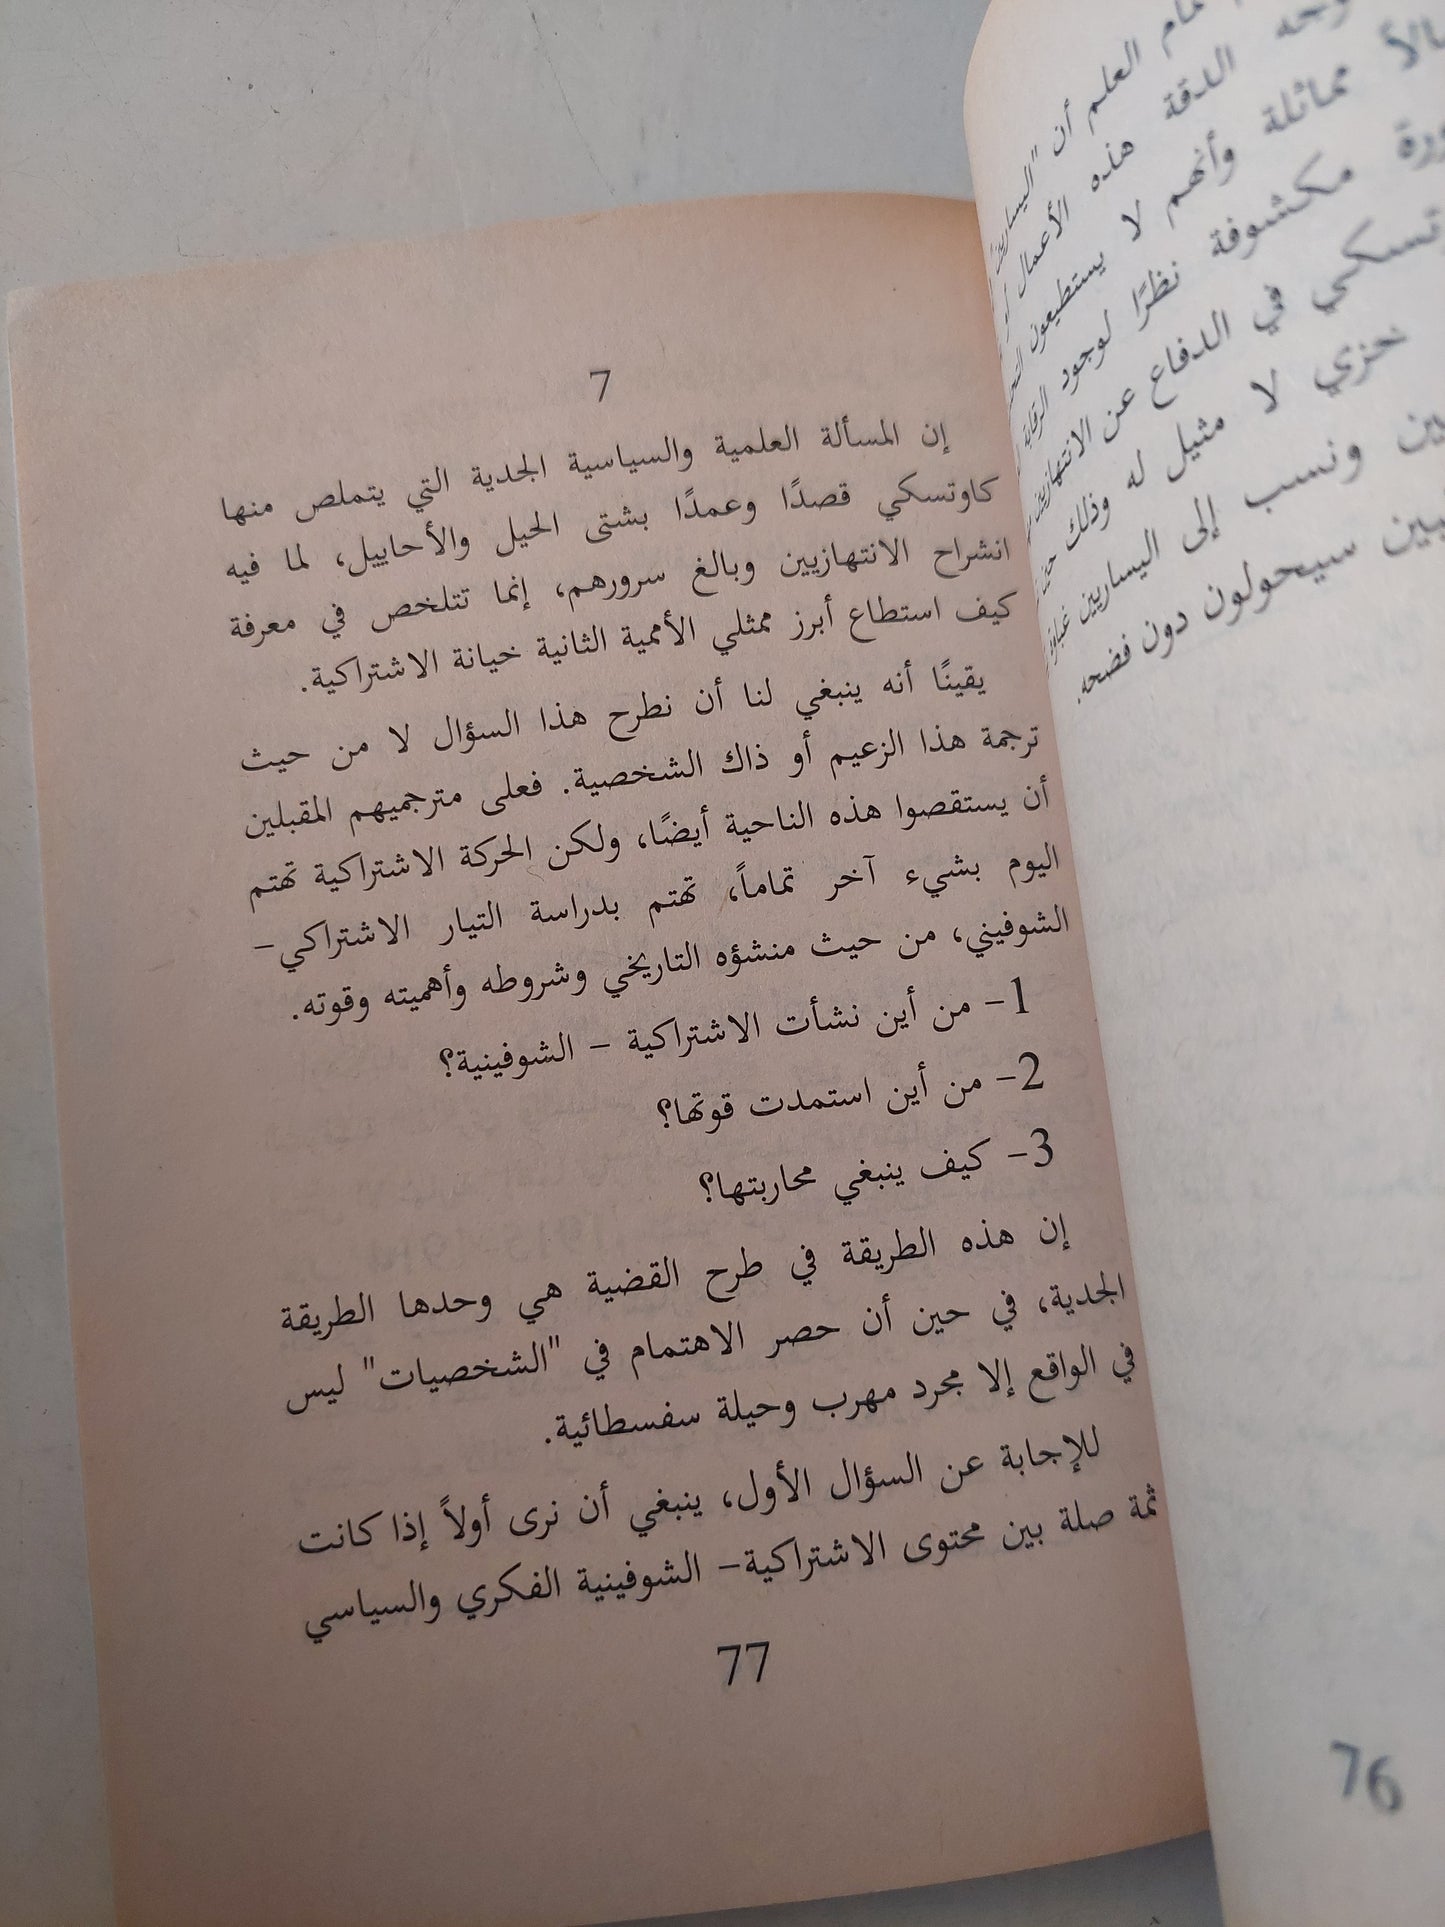 مام العلم أن "اليساريين
الدقة هذه الأعمال أو
مماثلة وأنهم لا يستطيعون
مكشوفة نظرًا لوجود الرقابة
في الدفاع عن الانتهازيين
خزي لا مثيل له وذلك
ونسب إلى اليساريين
سيحولون دون فضحه.
76
7
إن المسألة العلمية والسياسية الجدية التي يتملص منها
كاوتسكي قصدًا وعمدًا بشتى الحيل والأحاييل، لما فيه
انشراح الانتهازيين وبالغ سرورهم، إنما تتلخص في معرفة
كيف استطاع أبرز ممثلي الأممية الثانية خيانة الاشتراكية.
يقينًا أنه ينبغي لنا أن نطرح هذا السؤال لا من حيث
ترجمة هذا الزعيم أو ذاك الشخصية. فعلى مترجميهم المقبلين
أن يستقصوا هذه الناحية أيضًا، ولكن الحركة الاشتراكية تهتم
اليوم بشيء آخر تماماً، تهتم بدراسة التيار الاشتراكي–
الشوفيني، من حيث منشؤه التاريخي وشروطه وأهميته وقوته.
1– من أين نشأت الاشتراكية – الشوفينية؟
2– من أين استمدت قوتها؟
3– كيف ينبغي محاربتها؟
إن هذه الطريقة في طرح القضية هي وحدها الطريقة
الجدية، في حين أن حصر الاهتمام في "الشخصيات" ليس
في الواقع إلا مجرد مهرب وحيلة سفسطائية.
للإجابة عن السؤال الأول، ينبغي أن نرى أولاً إذا كانت
ثمة صلة بين محتوى الاشتراكية– الشوفينية الفكري والسياسي
77